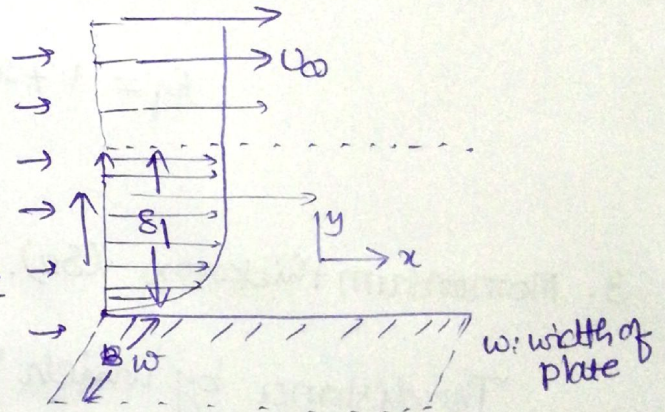 U∞
δ1
y
x
w
w: width of
plate